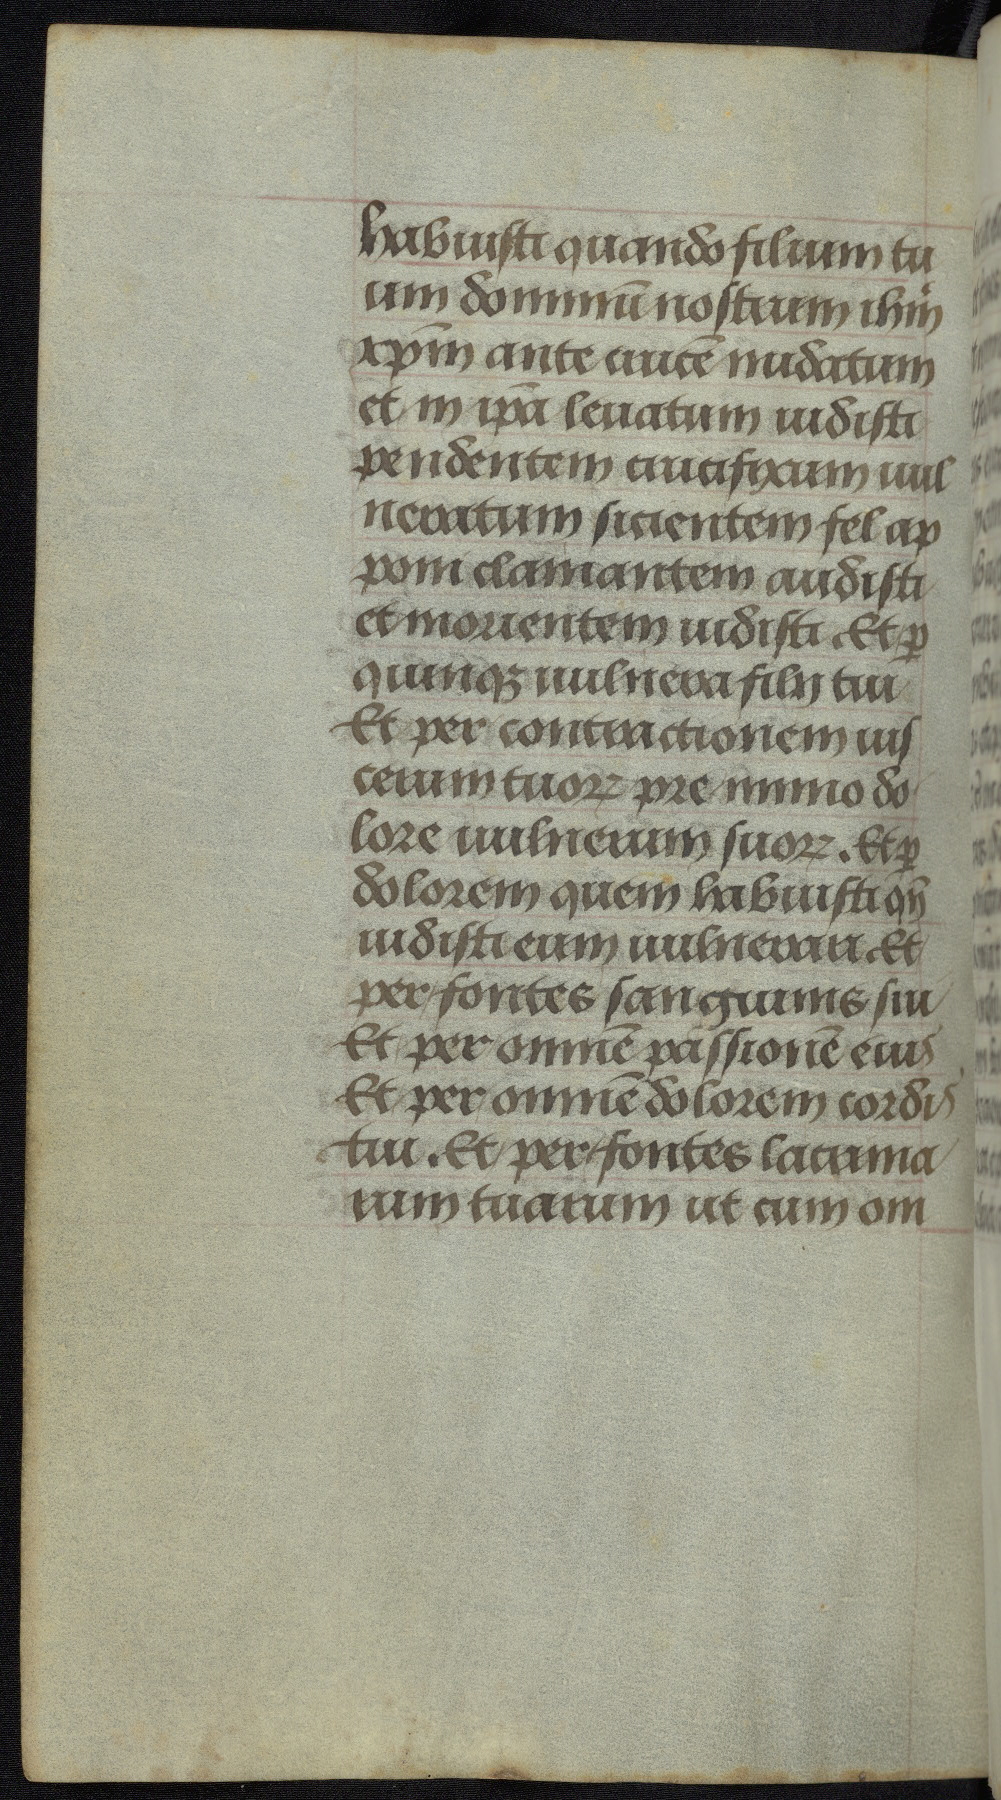 habuisti quando filium tu
um dominū nostrum ihm̄
xpm̄ ante crucē nudatum
et in ip̄a leuatum uidisti
pendentem crucifixum uul
neratum sicientem fel ap
poni clamantem audisti
et morientem uidisti. Et ꝑ
quinqꝫ uulnera filij tui
Et per contractionem uis
cerum tuoꝝ pre nimio do
lore uulnerum suoꝝ. Et ꝑ
dolorem quem habuisti qn̄
uidisti eum uulnerari. Et
per fontes sanguinis sui
Et per omnē passionē eius
Et per omnē dolorem cordis
tui. Et per fontes lacrima
rum tuarum ut cum om